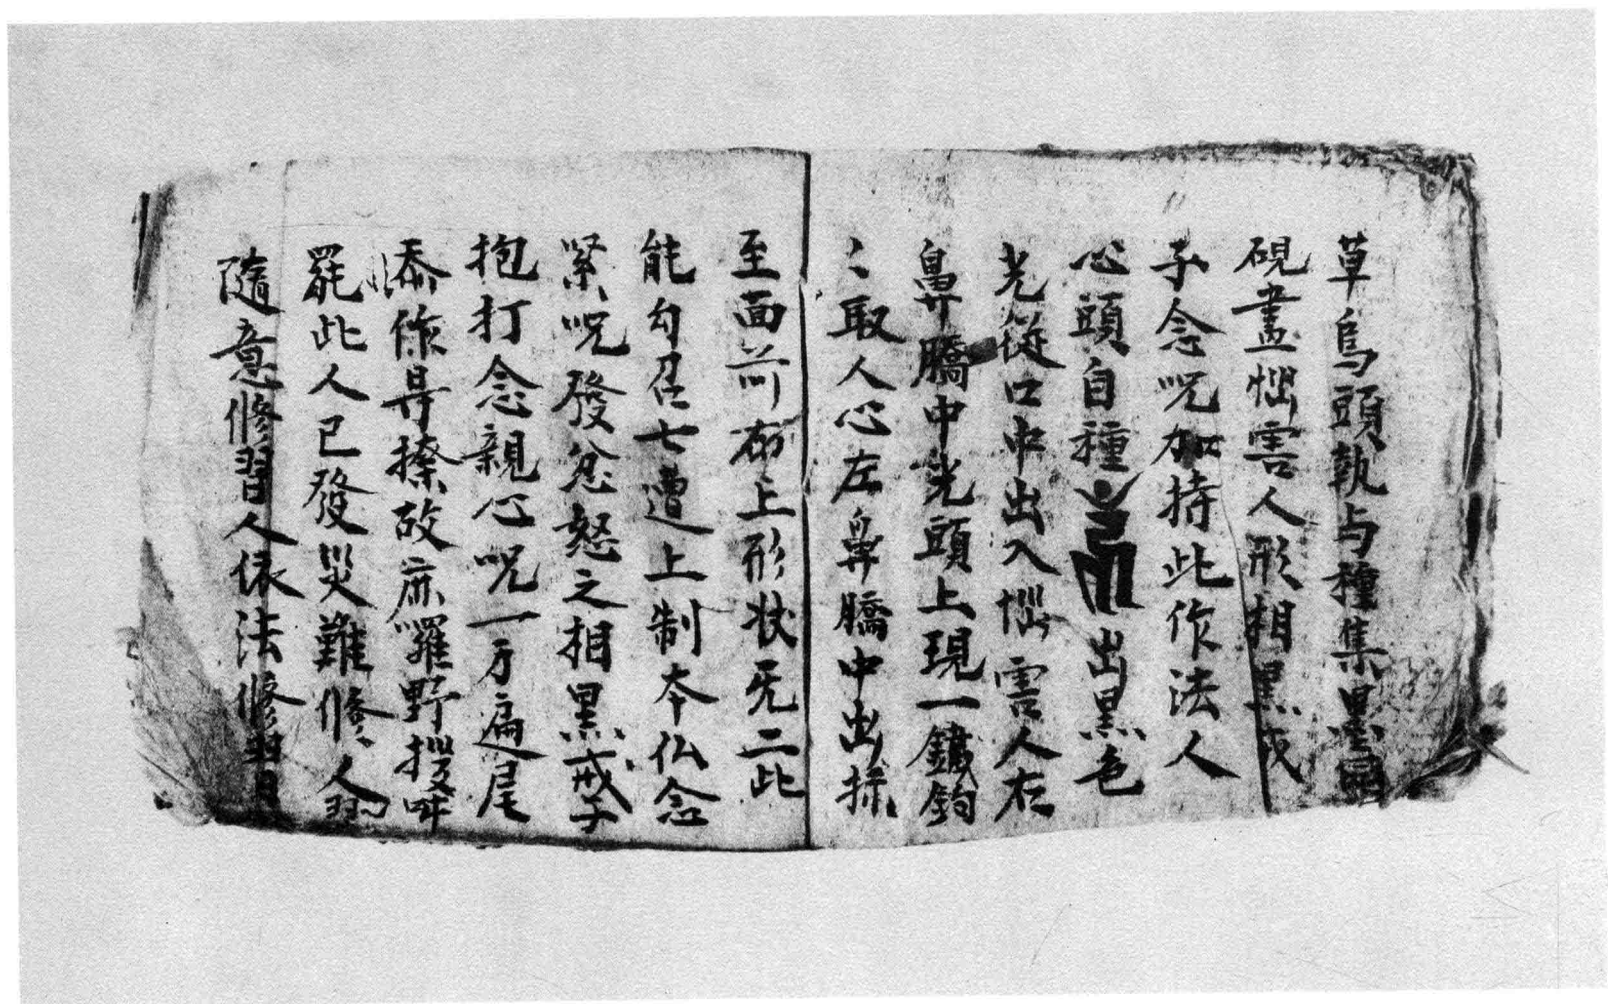 草烏頭執与種集墨
硯畫惱害人形相黑或
子念呪加持此作法人
心頭自種出黑色
光從口中出入惱害人右
鼻𦞦中光頭上現一鐵鉤
〻取人心左鼻𦞦中出採
至面前布上形状无二此
能勾召七遭上制本仏念
緊呪發忿怒之相黑戒子
抱打念親心呪一万遍尾
添作㝵捺故麻囉野㗭吽
罷此人已發災難修人
隨意修習人依法修習